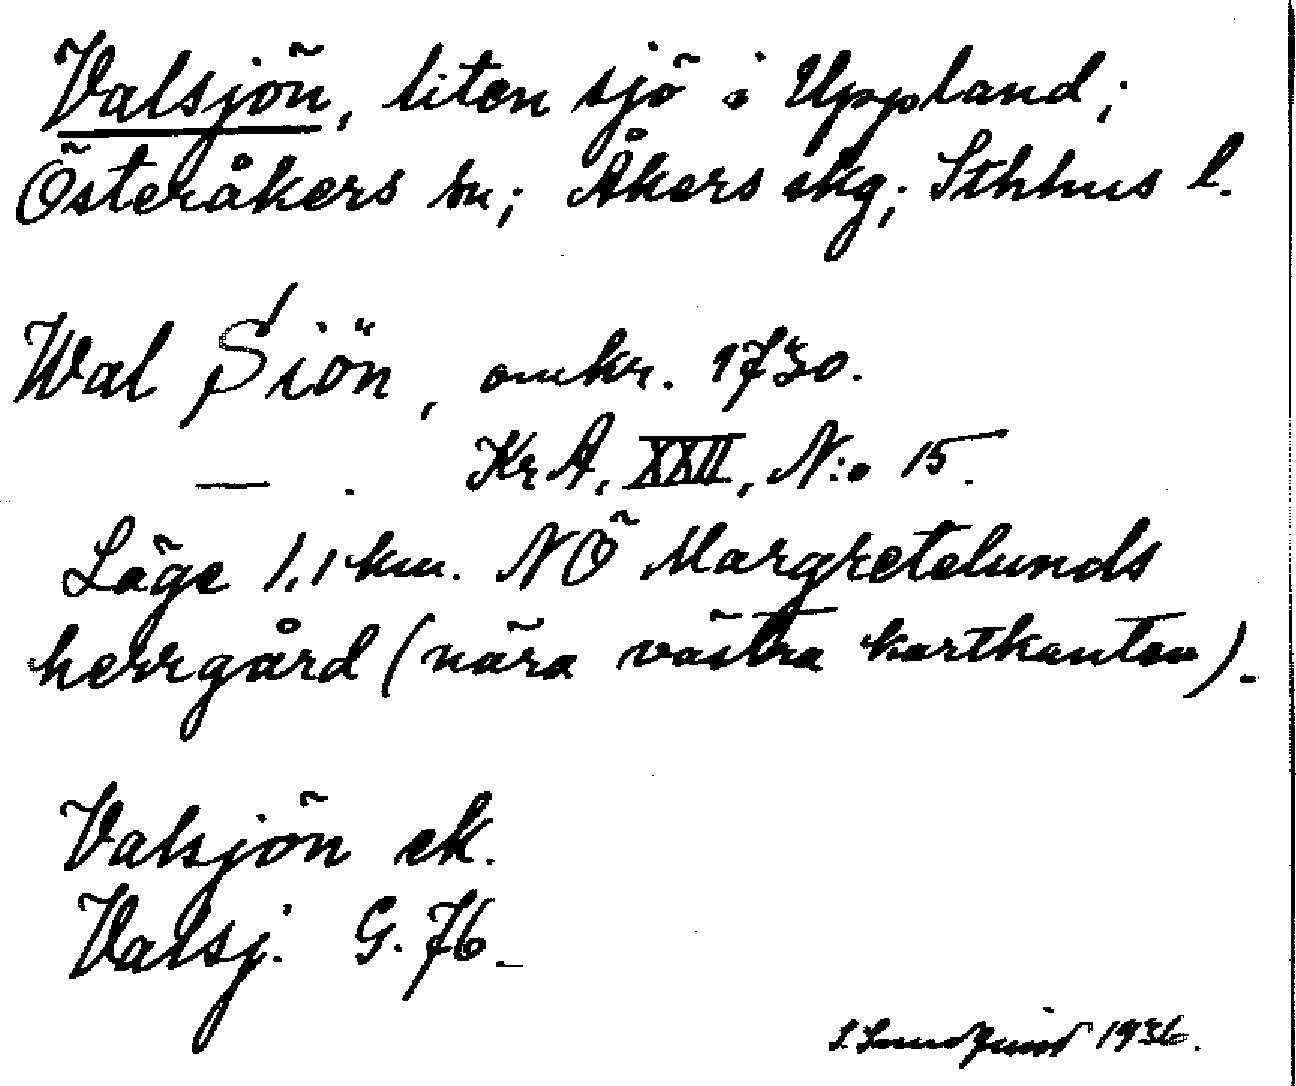 Valsjön, liten sjö i Uppland;
Österåkers sn; Åkers skg; Sthlms l.
Wal Siön, omkr. 1730.
— . KrA, XXII, N:o 15.
Läge 1,1 km. NÖ Margretelunds
herrgård (nära västra kartkanten).
Valsjön ek.
Valsj. G. 76.
1936.